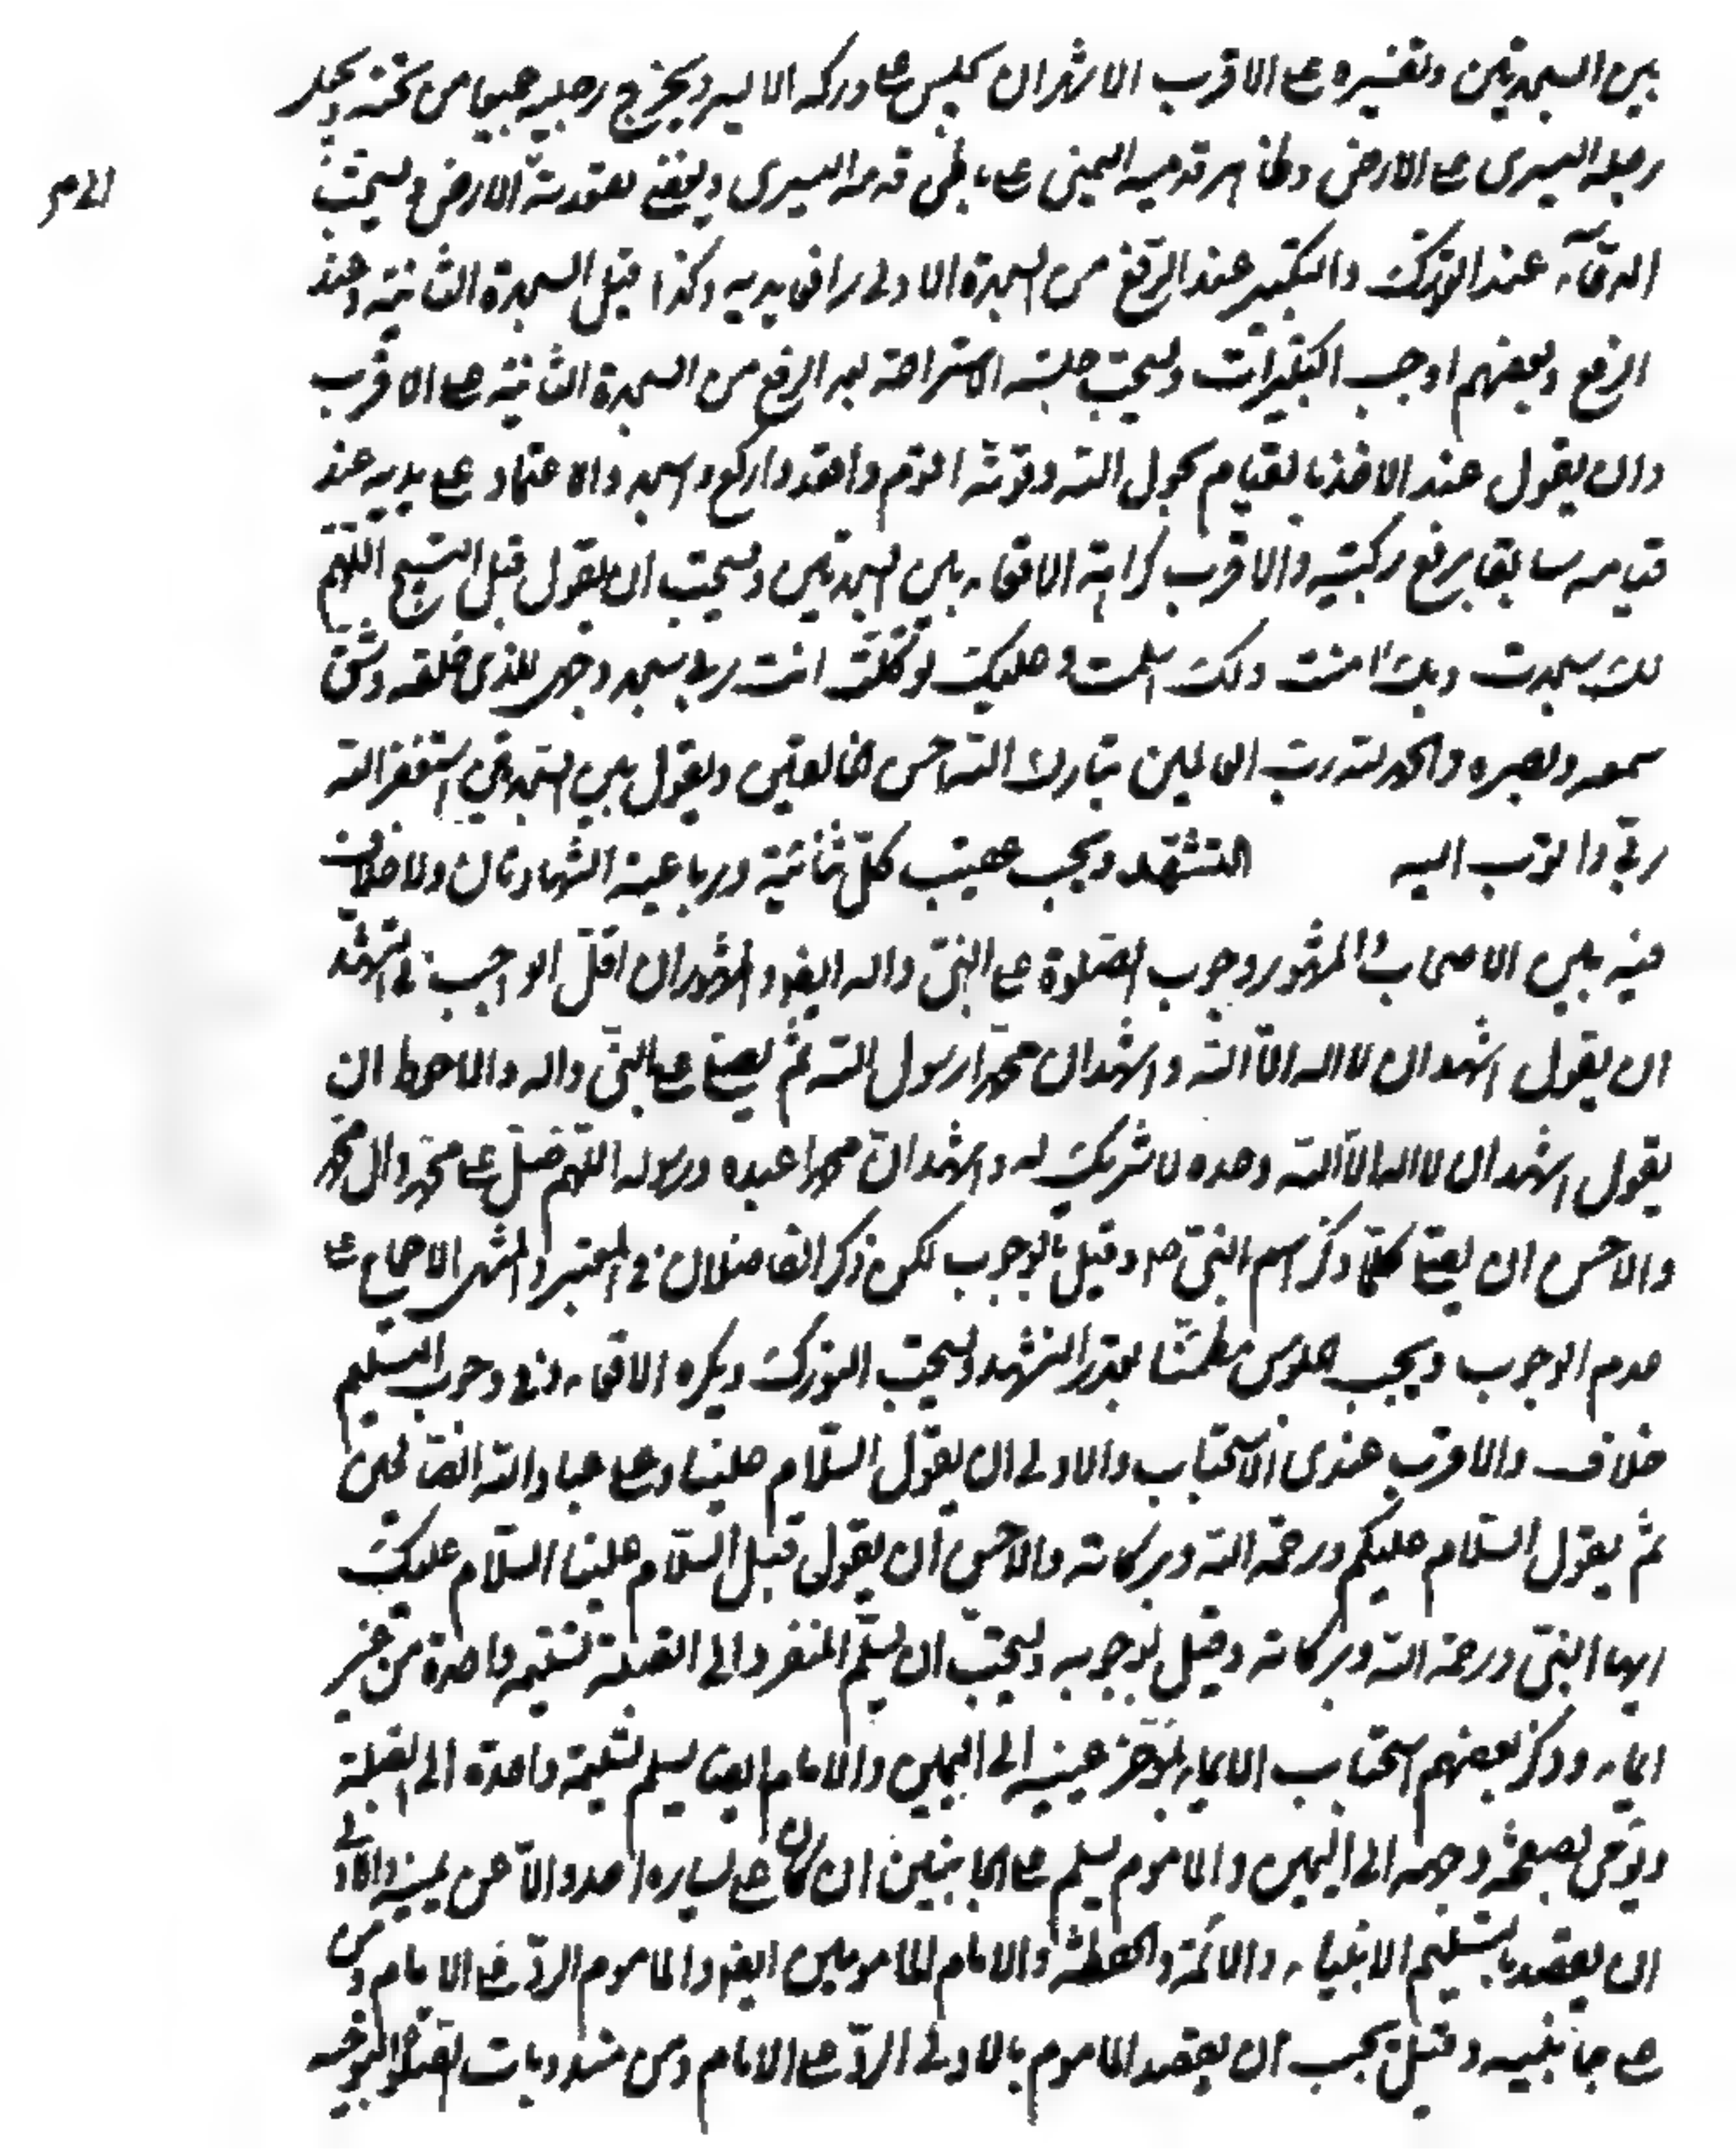 بين السجدتين وتفسيره على الاقرب الاشهر ان يجلس على وركه الايسر ويخرج رجليه جميعا من تحته ويجعل
رجله اليسرى على الارض وظاهر قدميه اليمنى على باطن قدمه اليسرى ويفضى بمقعدته الارض ويستحب
الدعآء عند التورك والتكبير عند الرفع من السجدة الاولى رافعا يديه وكذا قبل السجدة الثانية وعند
الرفع وبعضهم اوجب التكبيرات ويستحب جلسة الاستراحة بعد الرفع من السجدة الثانية على الاقرب
وان يقول عند الاخذ بالقيام بحول الله وقوته اقوم واقعد واركع واسجد والاعتماد على يديه عند
قيامه سابقا برفع ركبتيه والاقرب كراهة الاقعاء بين السجدتين ويستحب ان يقول قبل التسبيح اللهم
لك سجدت وبك امنت ولك اسلمت وعليك توكلت انت ربى سجد وجهى للذى خلقه وشق
سمعه وبصره والحمد لله رب العالمين تبارك الله احسن الخالقين ويقول بين السجدتين استغفر الله
ربي واتوب اليه التشهد ويجب عقيب كل ثنائية ورباعية الشهادتان ولا خلاف
فيه بين الاصحاب والمشهور وجوب الصلوة على النبى واله ايضا والمشهور ان اقل الواجب في التشهد
ان يقول اشهد ان لا اله الا الله واشهد ان محمدا رسول الله ثم يصلى على النبى واله والاحوط ان
يقول اشهد ان لا اله الا الله وحده لا شريك له واشهد ان محمدا عبده ورسوله اللهم صل على محمد وال محمد
والاحسن ان يصلى كلما ذكر اسم النبى ص وقيل بالوجوب لكن ذكر الفاضلان في المعتبر والمنتهى الاجماع على
عدم الوجوب ويجب الجلوس مطمئنا بقدر التشهد ويستحب التورك ويكره الاقعاء وفى وجوب التسليم
خلاف والاقرب عندى الاستحباب والاولى ان يقول السلام علينا وعلى عباد الله الصالحين
ثم يقول السلام عليكم ورحمة الله وبركاته والاحسن ان يقول قبل السلام علينا السلام عليك
ايها النبى ورحمة الله وبركاته وقيل بوجوبه ويستحب ان يسلم المنفرد الى القبلة تسليمة واحدة من غير
ايماء وذكر بعضهم استحباب الايماء بمؤخر عينيه الى اليمين والامام ايضا يسلم تسليمة واحدة الى القبلة
ويؤمى بصفحة وجهه الى اليمين والماموم يسلم على الجانبين ان كان على يساره احد والا عن يمينه والاولى
ان يقصد بالتسليم الانبياء والائمة والحفظة والامام المامومين ايضا والماموم الرد على الامام ومن
على جانبيه وقيل يجب ان يقصد الماموم بالاولى الرد على الامام ومن مندوبات الصلوة التوجه